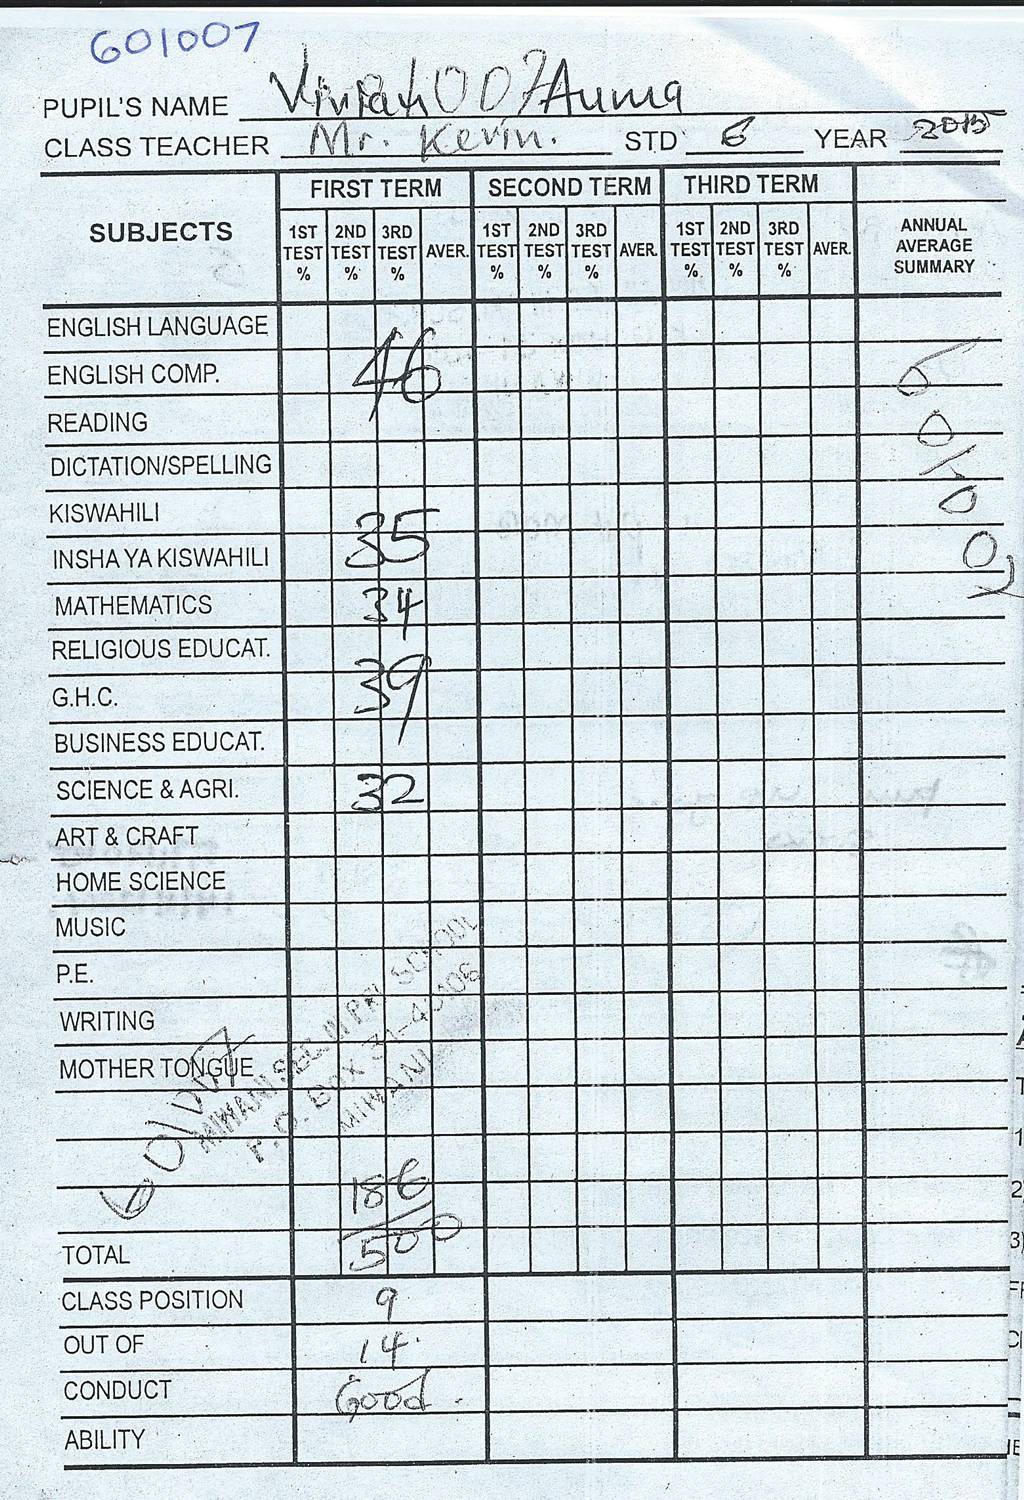 601007
PUPIL'S NAME Vivian 007 Auma
CLASS TEACHER Mr. Kevin. STD 6 YEAR 2015
SUBJECTS FIRST TERM SECOND TERM THIRD TERM ANNUAL AVERAGE SUMMARY
1ST TEST % 2ND TEST % 3RD TEST % AVER. 1ST TEST % 2ND TEST % 3RD TEST % AVER. 1ST TEST % 2ND TEST % 3RD TEST % AVER.
ENGLISH LANGUAGE
ENGLISH COMP. 46
READING
DICTATION/SPELLING
KISWAHILI
INSHA YA KISWAHILI 35
MATHEMATICS 34
RELIGIOUS EDUCAT.
G.H.C. 39
BUSINESS EDUCAT.
SCIENCE & AGRI. 32
ART & CRAFT
HOME SCIENCE
MUSIC
P.E.
WRITING
MOTHER TONGUE
601007
P.O. BOX 31-40106
MIWANI
186
TOTAL 500
CLASS POSITION 9
OUT OF 14.
CONDUCT Good.
ABILITY